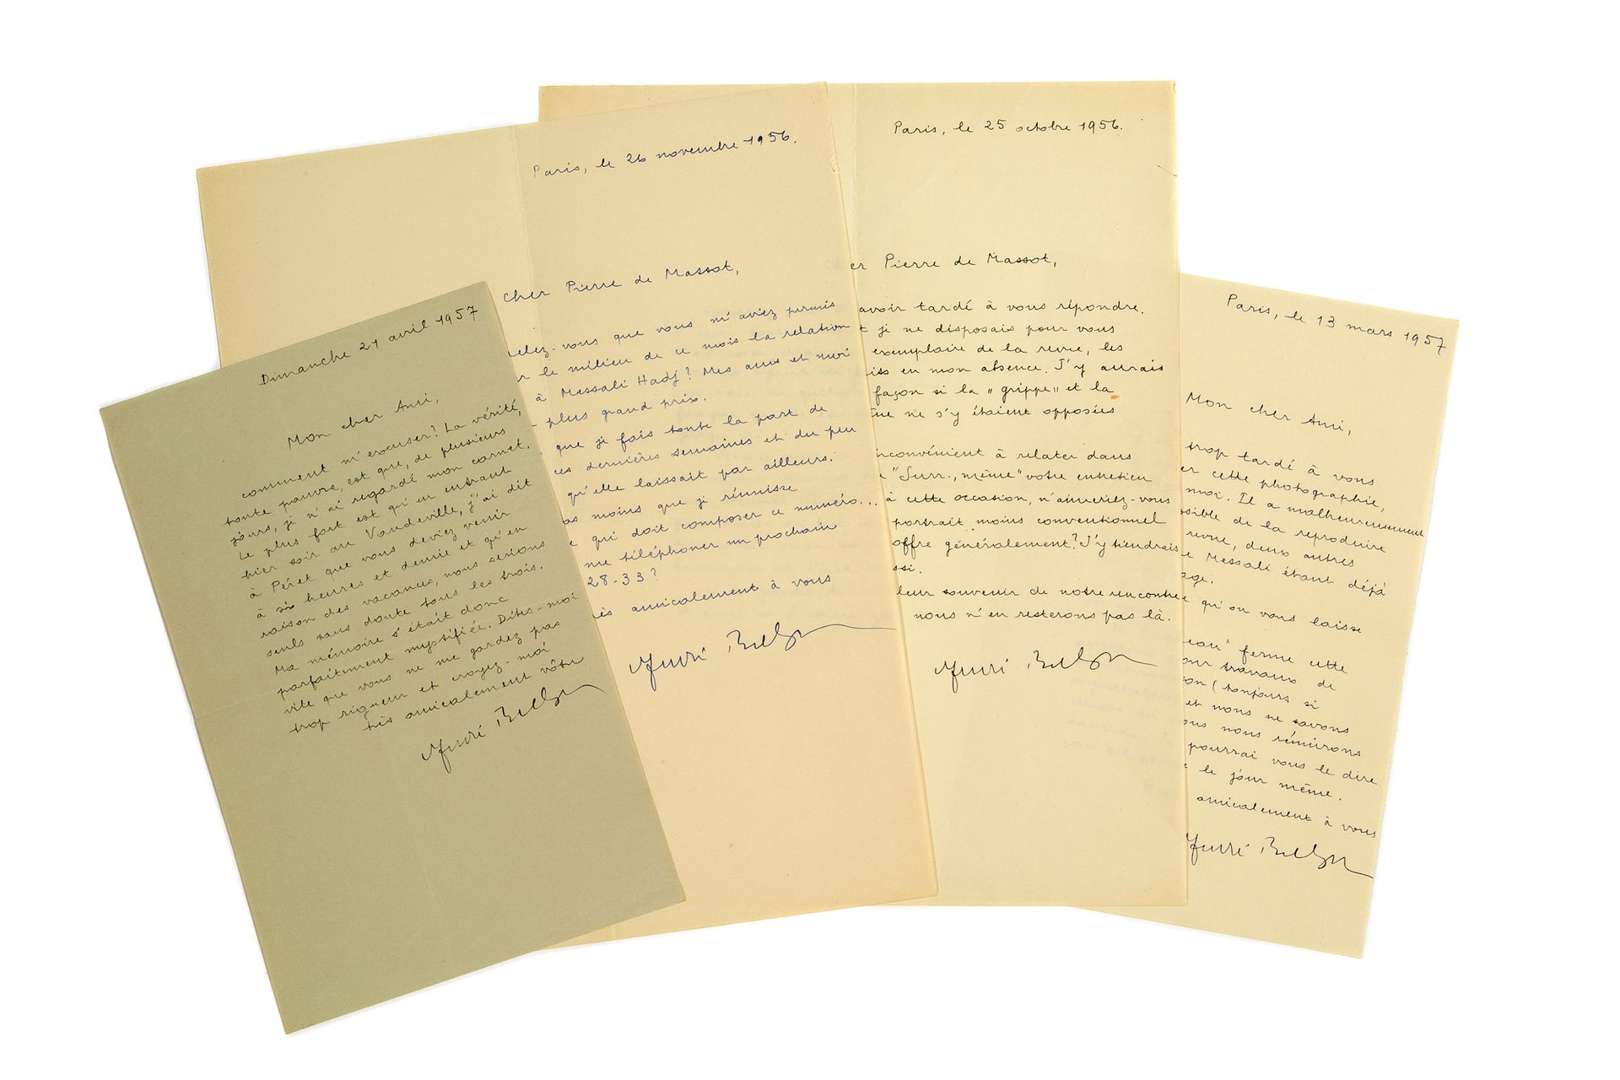 Dimanche 21 avril 1957
Mon cher Ami,
comment m'excuser? La vérité,
toute pauvre, est que, de plusieurs
jours, je n'ai regardé mon carnet.
Le plus fort est qu'en entrant
hier soir au Vaudeville, j'ai dit
à Péret que vous deviez venir
à six heures et demie et qu'en
raison des vacances, nous serions
seuls sans doute tous les trois.
Ma mémoire s'était donc
parfaitement mystifiée. Dites-moi
vite que vous ne me gardez pas
trop rigueur et croyez-moi
très amicalement vôtre
Paris, le 26 novembre 1956.
cher Pierre de Massot,
elez-vous que vous m'aviez permis
r le milieu de ce mois la relation
à Messali Hadj? Mes amis et moi
plus grand prix.
que je fais toute la part de
ces dernières semaines et du peu
qu'elle laissait par ailleurs.
as moins que je réunisse
e qui doit composer ce numéro...
me téléphoner un prochain
28-33?
ès amicalement à vous
Paris, le 25 octobre 1956.
er Pierre de Massot,
avoir tardé à vous répondre.
t je ne disposais pour vous
exemplaire de la revue, les
is en mon absence. J'y aurais
façon si la "grippe" et la
ne s'y étaient opposées
nconvénient à relater dans
"Surr., même" votre entretien
à cette occasion, n'aimeriez-vous
portrait moins conventionnel
offre généralement? J'y tiendrais
ssi.
leur souvenir de notre rencontre
nous n'en resterons pas là.
Paris, le 13 mars 1957
Mon cher Ami,
trop tardé à vous
er cette photographie,
moi. Il a malheureusement
sible de la reproduire
revue, deux autres
e Messali étant déjà
age.
e qu'on vous laisse
eau" ferme cette
our travaux de
on (toujours si
et nous ne savons
ous nous réunirons
pourrai vous le dire
e le jour même.
amicalement à vous